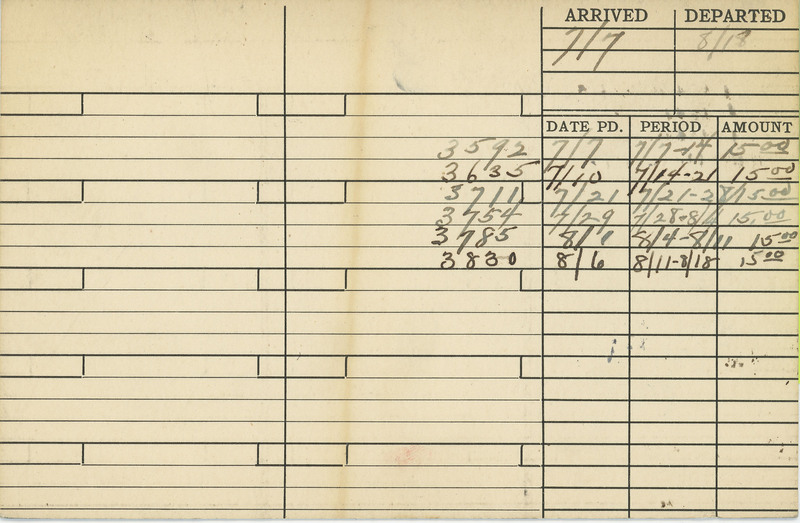 ARRIVED DEPARTED
7/7 8/18
DATE PD. PERIOD AMOUNT
3592 7/7 7/7-14 15.00
3635 7/10 7/14-21 15.00
3711 7/21 7/21-28 15.00
3754 7/29 7/28-8/4 15.00
3785 8/1 8/4-8/11 15.00
3830 8/6 8/11-8/18 15.00